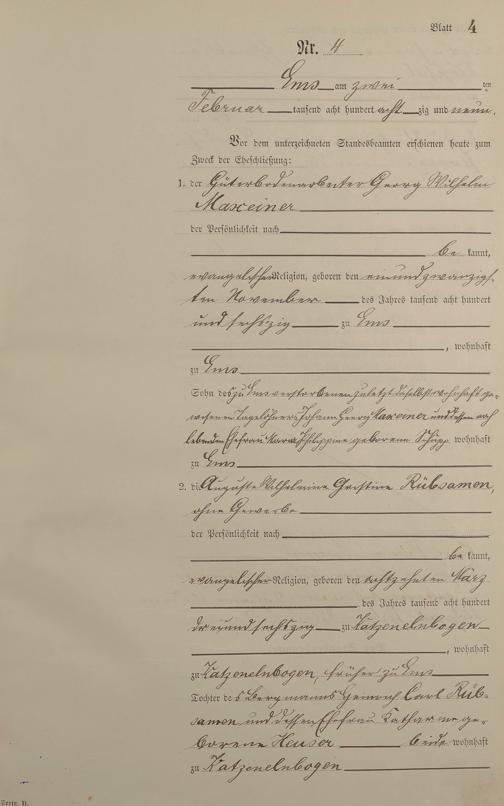 Blatt 4
Nr. 4
Ems am zwei ten
Februar tausend acht hundert acht zig und neun.
Vor dem unterzeichneten Standesbeamten erschienen heute zum
Zweck der Eheschließung:
1. der Güterbodenarbeiter Georg Wilhelm
Maxeiner
der Persönlichkeit nach
be kannt,
evangelischer Religion, geboren den einundzwanzig-
ten November des Jahres tausend acht hundert
und sechszig zu Ems
, wohnhaft
zu Ems
Sohn des zu Ems verstorbenen zuletzt daselbst wohnhaft ge-
wesenen Tagelöhners Johann Georg Maxeiner und dessen noch
lebenden Ehefrau Philippine geborene Schupp wohnhaft
zu Ems
2. die Auguste Wilhelmine Christine Rübsamen,
ohne Gewerbe
der Persönlichkeit nach
be kannt,
evangelischer Religion, geboren den achtzehnten März
des Jahres tausend acht hundert
dreiundsechszig zu Katzenelnbogen
, wohnhaft
zu Katzenelnbogen, früher zu Ems
Tochter des Bergmanns Heinrich Carl Rüb-
samen und dessen Ehefrau Katharine ge-
borene Heuser beide wohnhaft
zu Katzenelnbogen
Form. B.